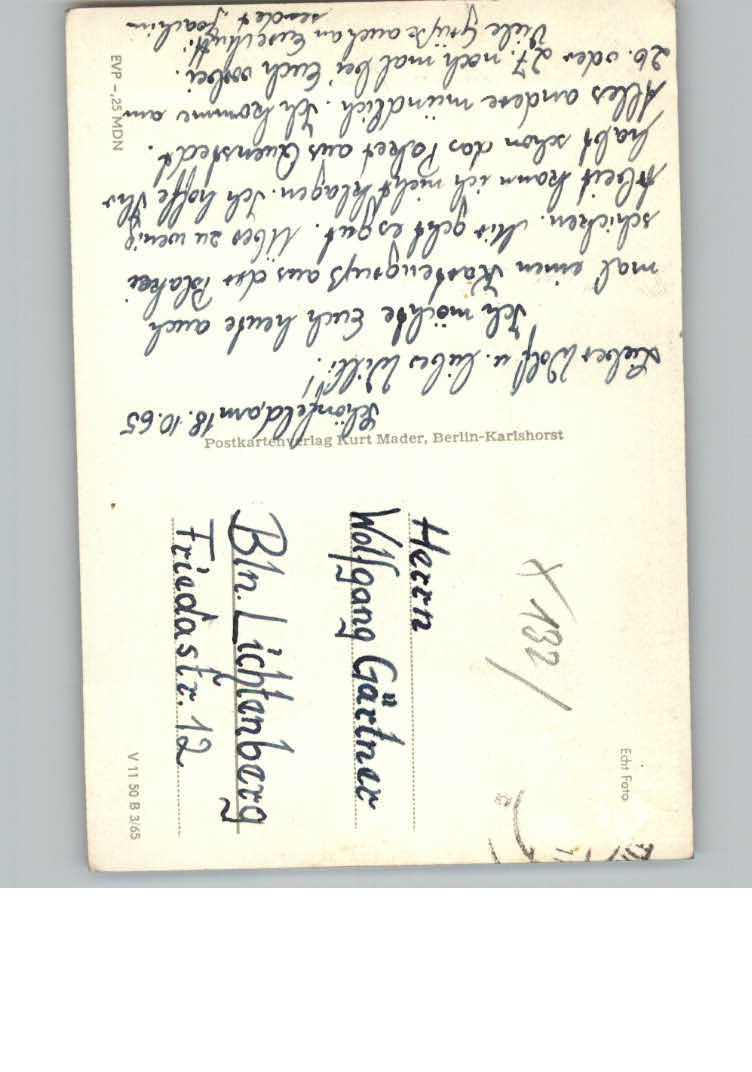 Schönfeld, am 18.10.65
Lieber Wolf u. lieber Willi!
Ich möchte Euch heute auch
mal einen Kartengruß aus der
schicken. Mir geht es gut. Über zu wenig
Arbeit kann ich nicht klagen. Ich hoffe Ihr
habt schon das Paket aus Quenstedt.
Alles andere mündlich. Ich komme am
26. oder 27. noch mal bei Euch vorbei.
Viele Grüße auch an Eure
sendet Joachim
EVP -,25 MDN
Postkartenverlag Kurt Mader, Berlin-Karlshorst
X 132/
Herrn
Wolfgang Gärtner
Bln. Lichtenberg
Friedastr. 12
V 11 50 B 3/65
Echt Foto